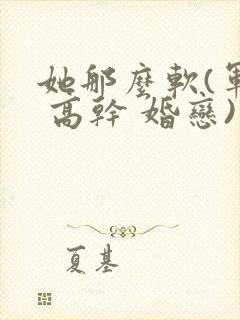 她那麼軟(軍
高幹 婚戀)
夏基